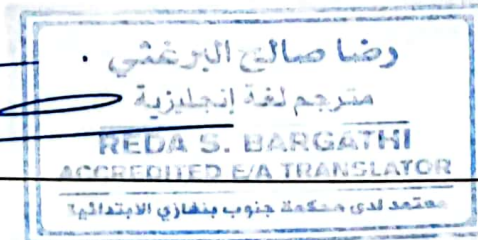 رضا صالح البرغثي
مترجم لغة إنجليزية
REDA S. BARGATHI
ACCREDITED E/A TRANSLATOR
معتمد لدى محكمة جنوب بنغازي الابتدائية